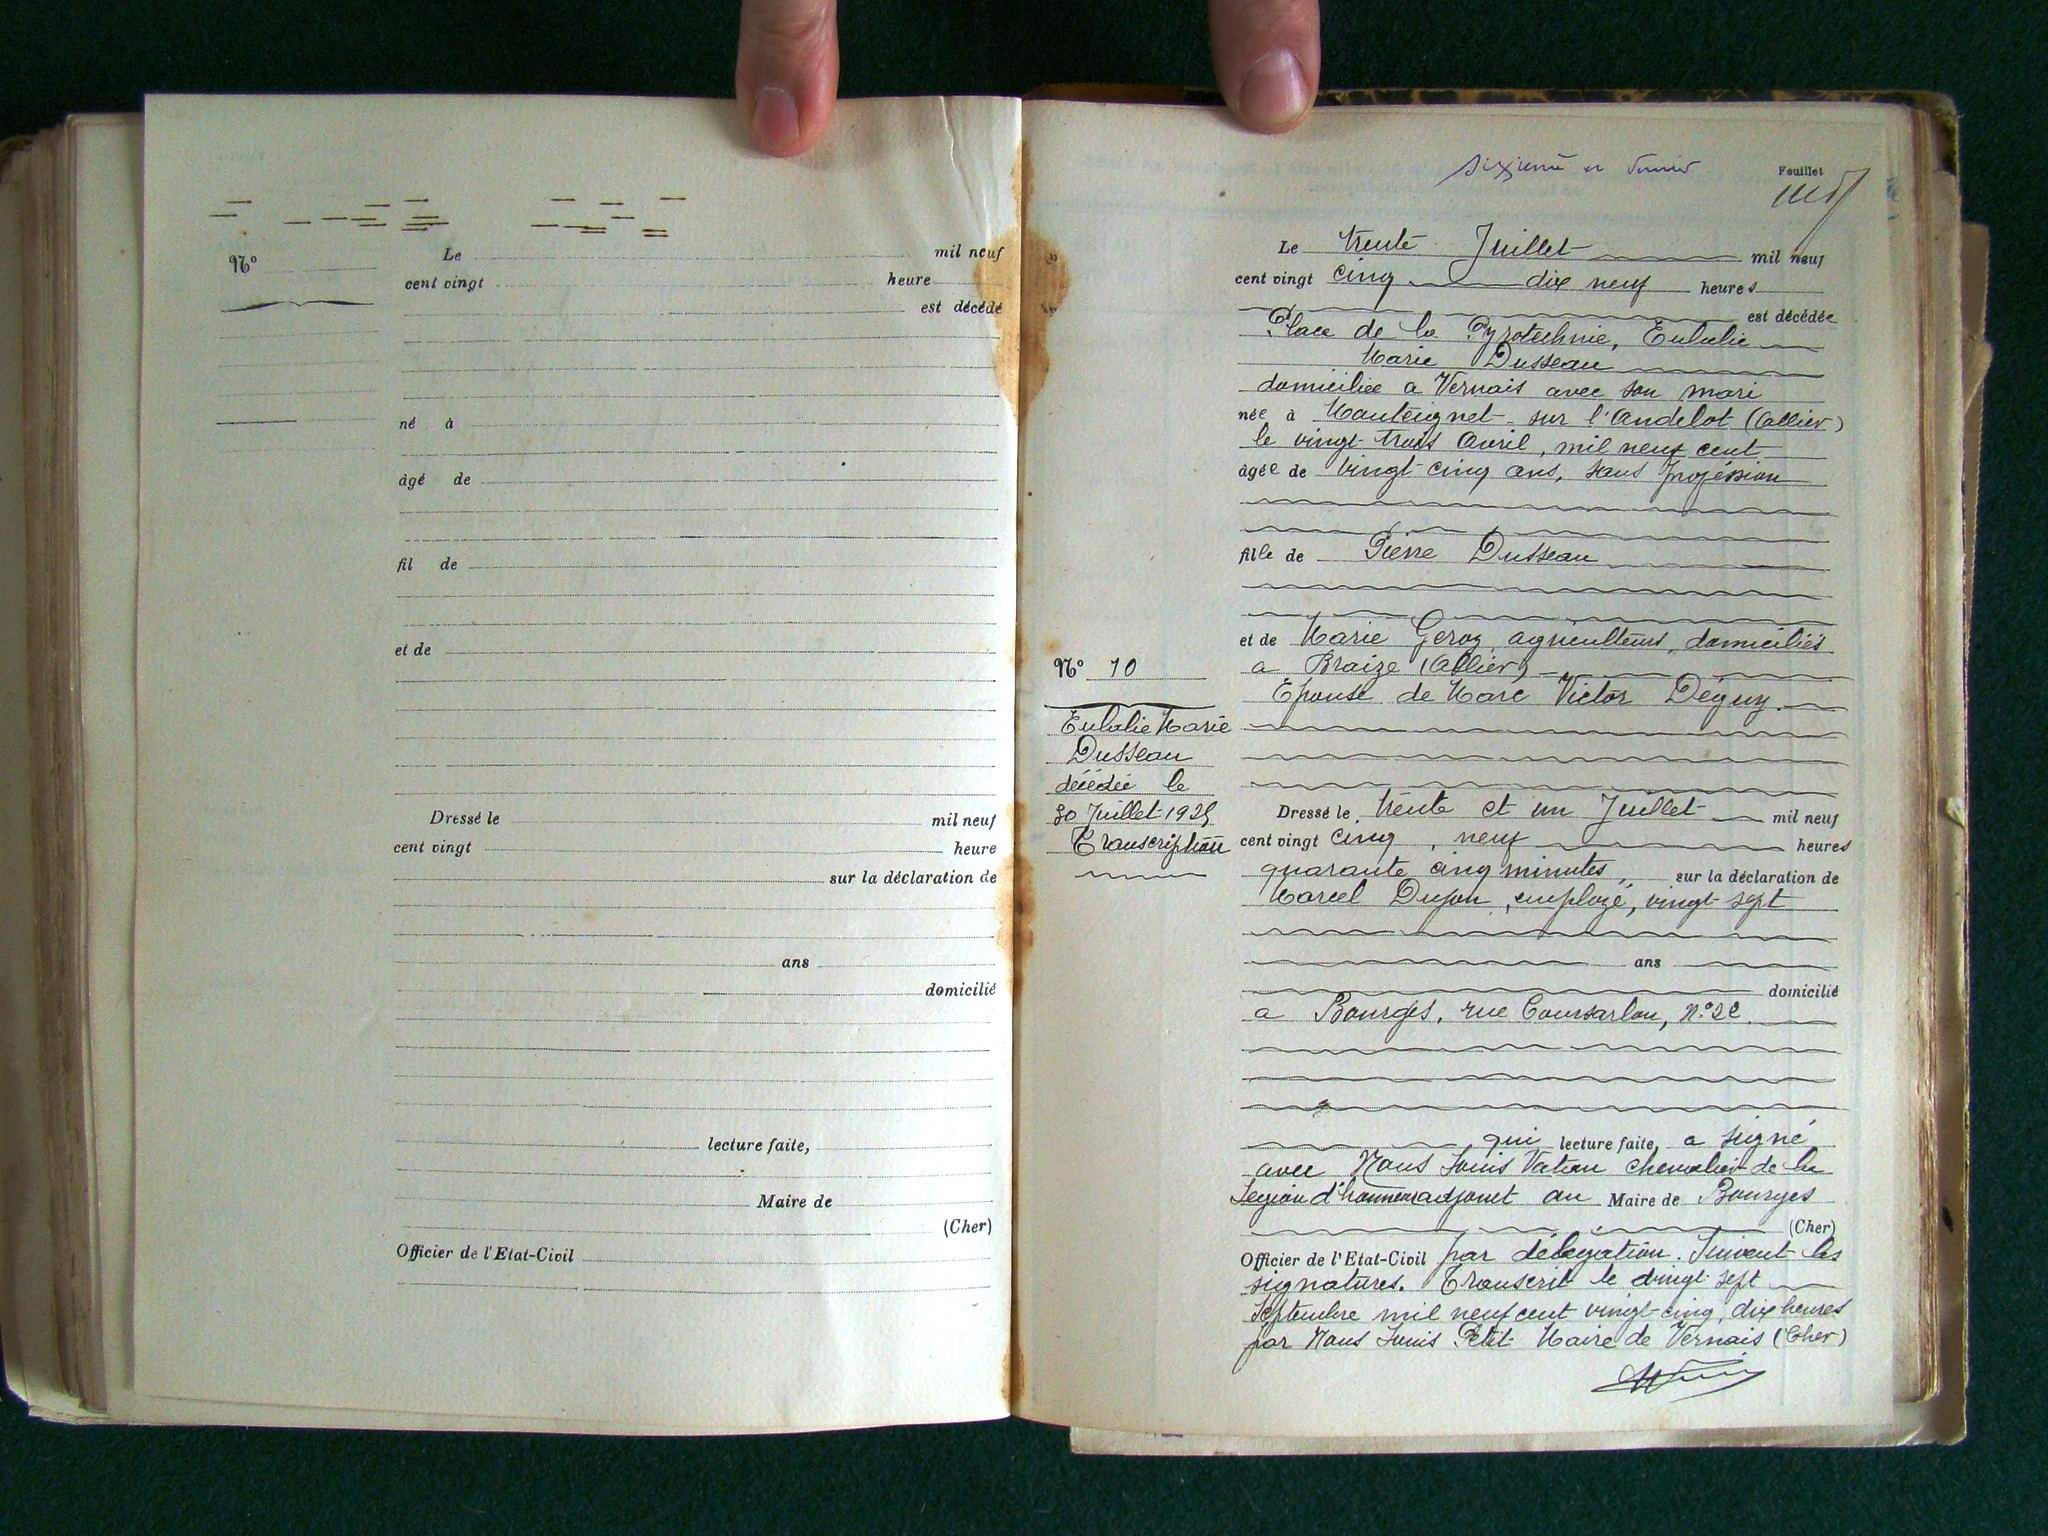 N°
Le mil neuf
cent vingt heure
est décédé
né à
âgé de
fil de
et de
Dressé le mil neuf
cent vingt heure
sur la déclaration de
ans
domicilié
lecture faite,
Maire de
(Cher)
Officier de l'Etat-Civil
Sixième et dernier
Feuillet
N° 10
Eulalie Marie
Dusseau
décédée le
30 Juillet 1925
Transcription
Le trente Juillet mil neuf
cent vingt cinq dix neuf heures
est décédée
Place de la Pyrotechnie, Eulalie
Marie Dusseau
domiciliée a Vernais avec son mari
née à Monteignet sur l'Andelot (Allier)
le vingt-trois Avril, mil neuf cent
âgée de vingt-cinq ans, sans profession
fille de Pierre Dusseau
et de Marie Geroz, agriculteurs, domiciliés
a Braize (Allier)
Epouse de Marc Victor Déguy.
Dressé le trente et un Juillet mil neuf
cent vingt cinq, neuf heures
quarante cinq minutes, sur la déclaration de
Marcel Dujon, employé, vingt-sept
ans
domicilié
a Bourges, rue Coursarlon, N°
qui lecture faite, a signé
avec Nous Louis Vatan chevalier de la
Légion d'honneur adjoint au Maire de Bourges
(Cher)
Officier de l'Etat-Civil par délégation. Suivent les
signatures. Transcrit le vingt sept
Septembre mil neuf cent vingt-cinq, dix heures
par Nous Louis Petit Maire de Vernais (Cher)